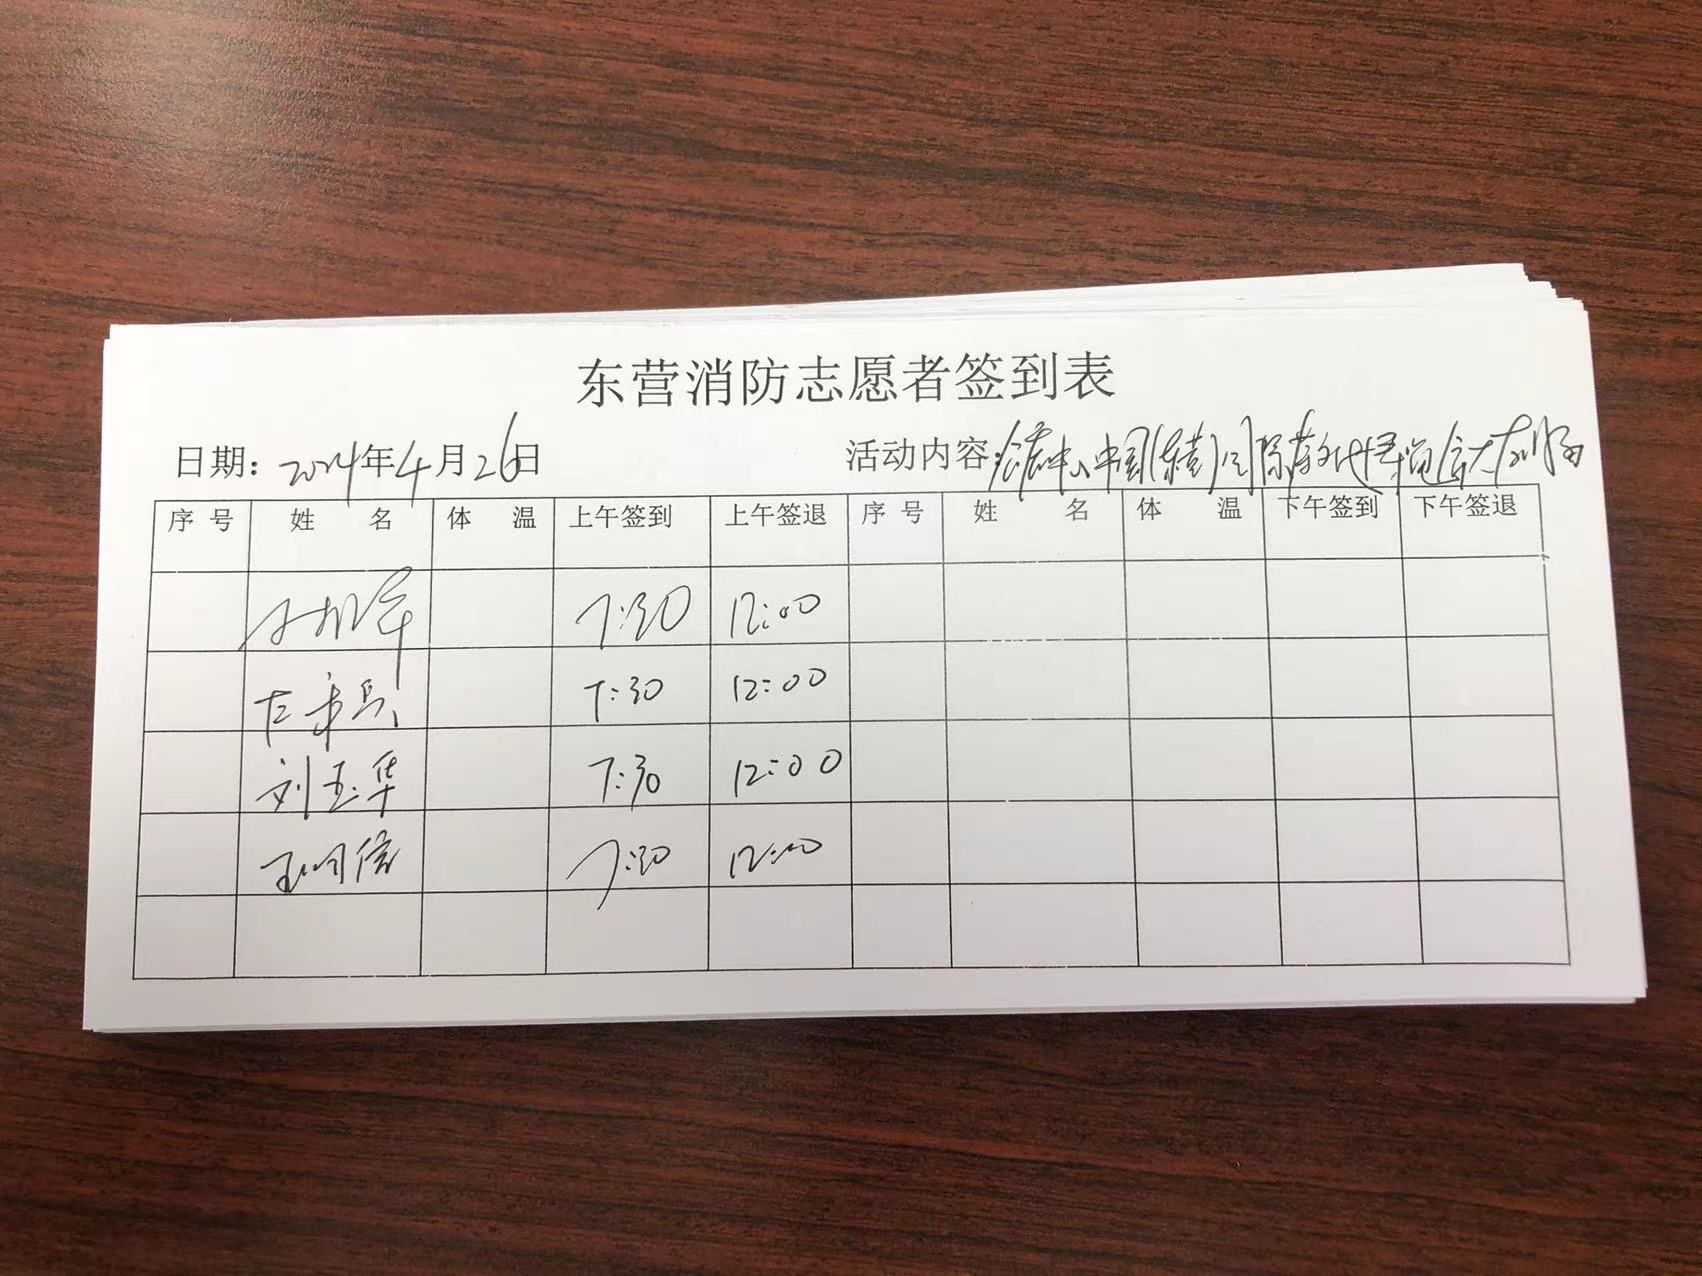 东营消防志愿者签到表
日期: 2024年4月26日 活动内容: 会展中心中国(东营)国际
序号 姓名 体温 上午签到 上午签退 序号 姓名 体温 下午签到 下午签退
7:30 12:00
7:30 12:00
刘玉华 7:30 12:00
王明信 7:30 12:00